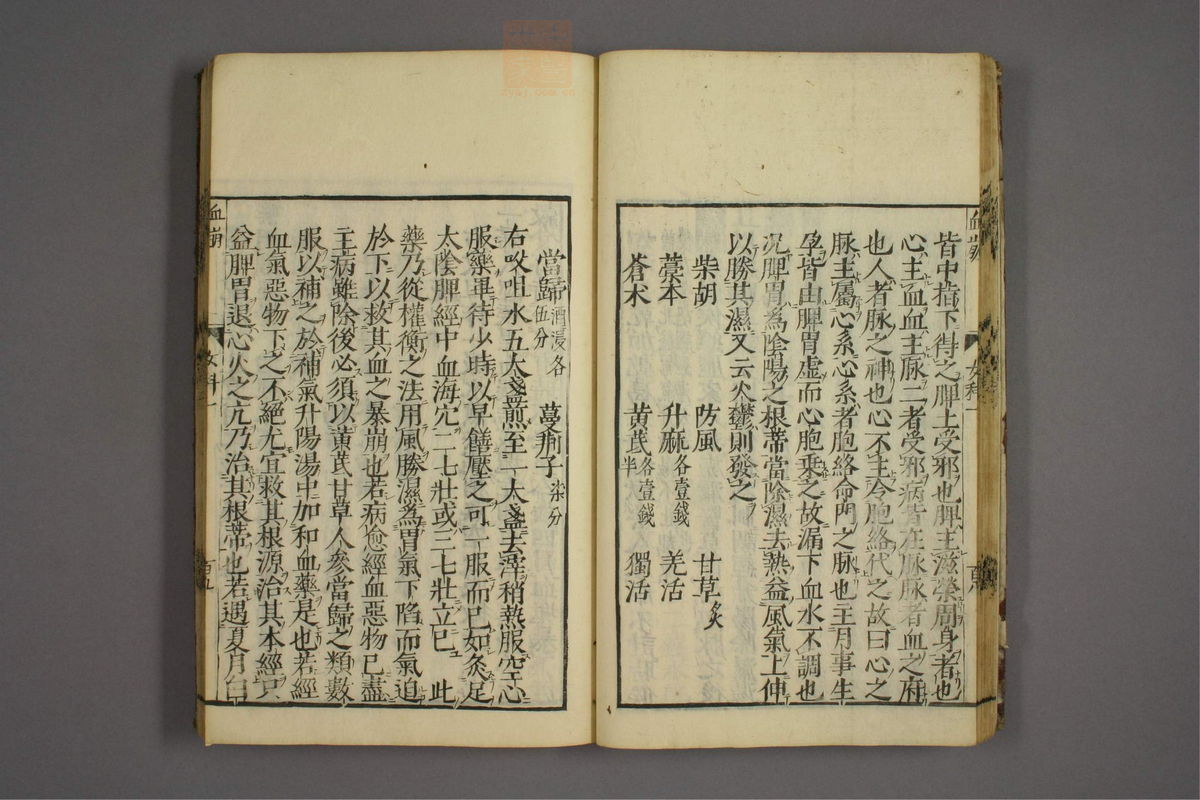 皆中指下得之脾上受邪也脾主滋榮周身者也
心主血血主脉二者受邪病皆在脉脉者血之府
也人者脉之神也心不主令胞絡代之故曰心之
脉主屬心系心系者胞絡命門之脉也主月事生
孕皆由脾胃虛而心胞乘之故漏下血水不調也
况脾胃為陰陽之根蒂當除濕去熱益風氣上伸
以勝其濕又云火鬱則發之
柴胡 防風 甘草炙
藁本 升麻各壹錢 羌活
蒼术 黄芪各壹錢半 獨活
血崩
女科一
當歸酒浸各伍分 蔓荊子柒分
右㕮咀水五大盞煎至一大盞去滓稍熱服空心
服藥畢待少時以早饍壓之可一服而已如灸足
太陰脾經中血海穴二七壯或三七壯立已 此
藥乃從權衡之法用風勝濕為胃氣下陷而氣迫
於下以救其血之暴崩也若病愈經血惡物已盡
主病雖除後必須以黄芪甘草人參當歸之類數
服以補之於補氣升陽湯中加和血藥是也若經
血氣惡物下之不絕尤宜救其根源治其本經只
益脾胃退心火之亢乃治其根蒂也若遇夏月白
血崩
女科一
百五